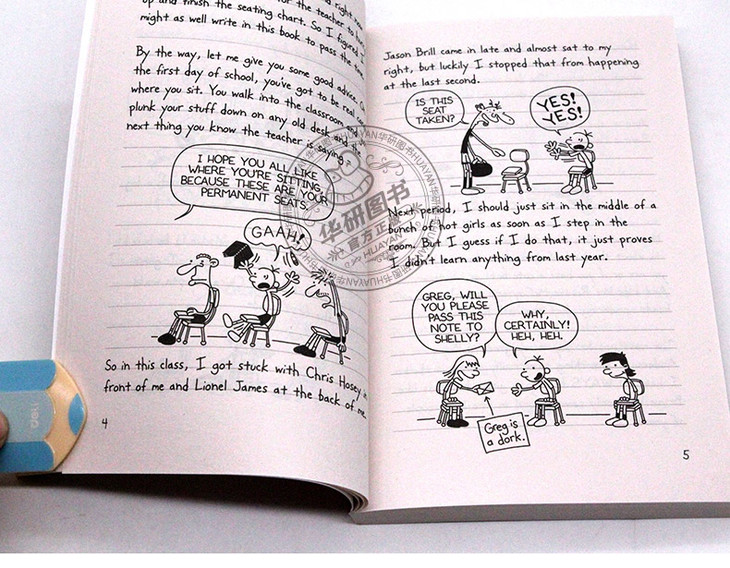 up and finish the seating chart. So I figured I
might as well write in this book to pass the time.
By the way, let me give you some good advice. On
the first day of school, you've got to be real careful
where you sit. You walk into the classroom and
plunk your stuff down on any old desk and the
next thing you know the teacher is saying,
I HOPE YOU ALL LIKE
WHERE YOU'RE SITTING,
BECAUSE THESE ARE YOUR
PERMANENT SEATS.
GAAH!
So in this class, I got stuck with Chris Hosey in
front of me and Lionel James at the back of me.
4
Jason Brill came in late and almost sat to my
right, but luckily I stopped that from happening
at the last second.
IS THIS
SEAT
TAKEN?
YES!
YES!
Next period, I should just sit in the middle of a
bunch of hot girls as soon as I step in the
room. But I guess if I do that, it just proves
I didn't learn anything from last year.
GREG, WILL
YOU PLEASE
PASS THIS
NOTE TO
SHELLY?
WHY,
CERTAINLY!
HEH, HEH.
Greg is
a dork.
5
华研图书
官方正版
HUAYAN华研图书